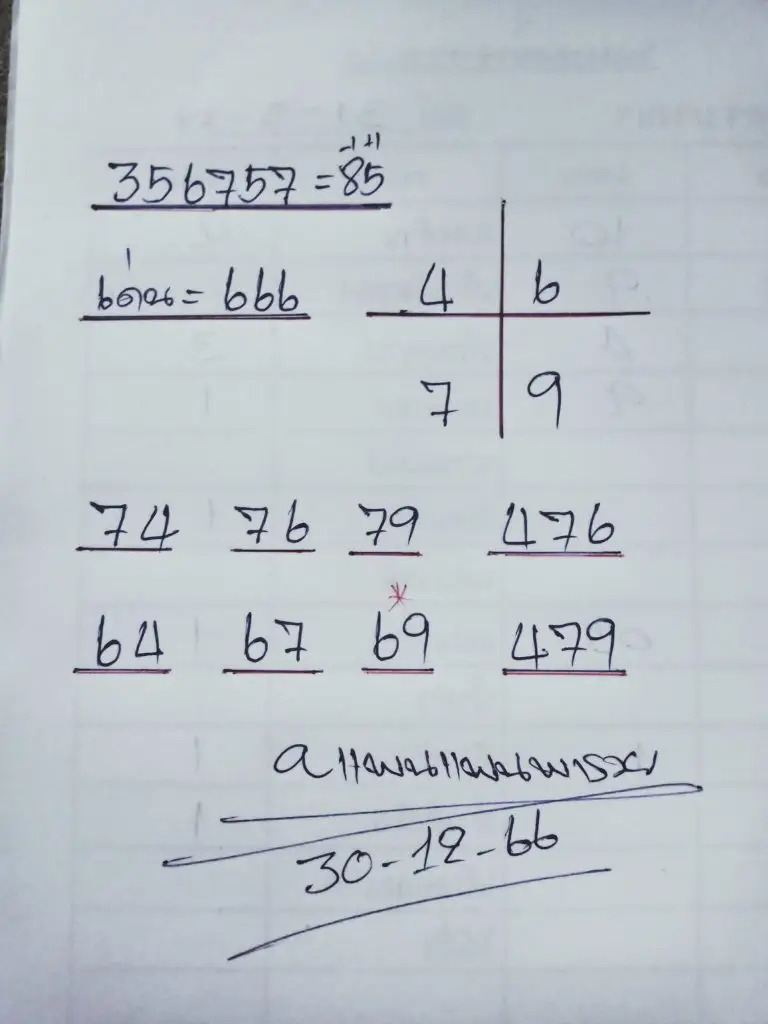 -1 +1
356757 = 85
เด่น = 666
4 6
7 9
74 76 79 476
*
64 67 69 479
30-12-66